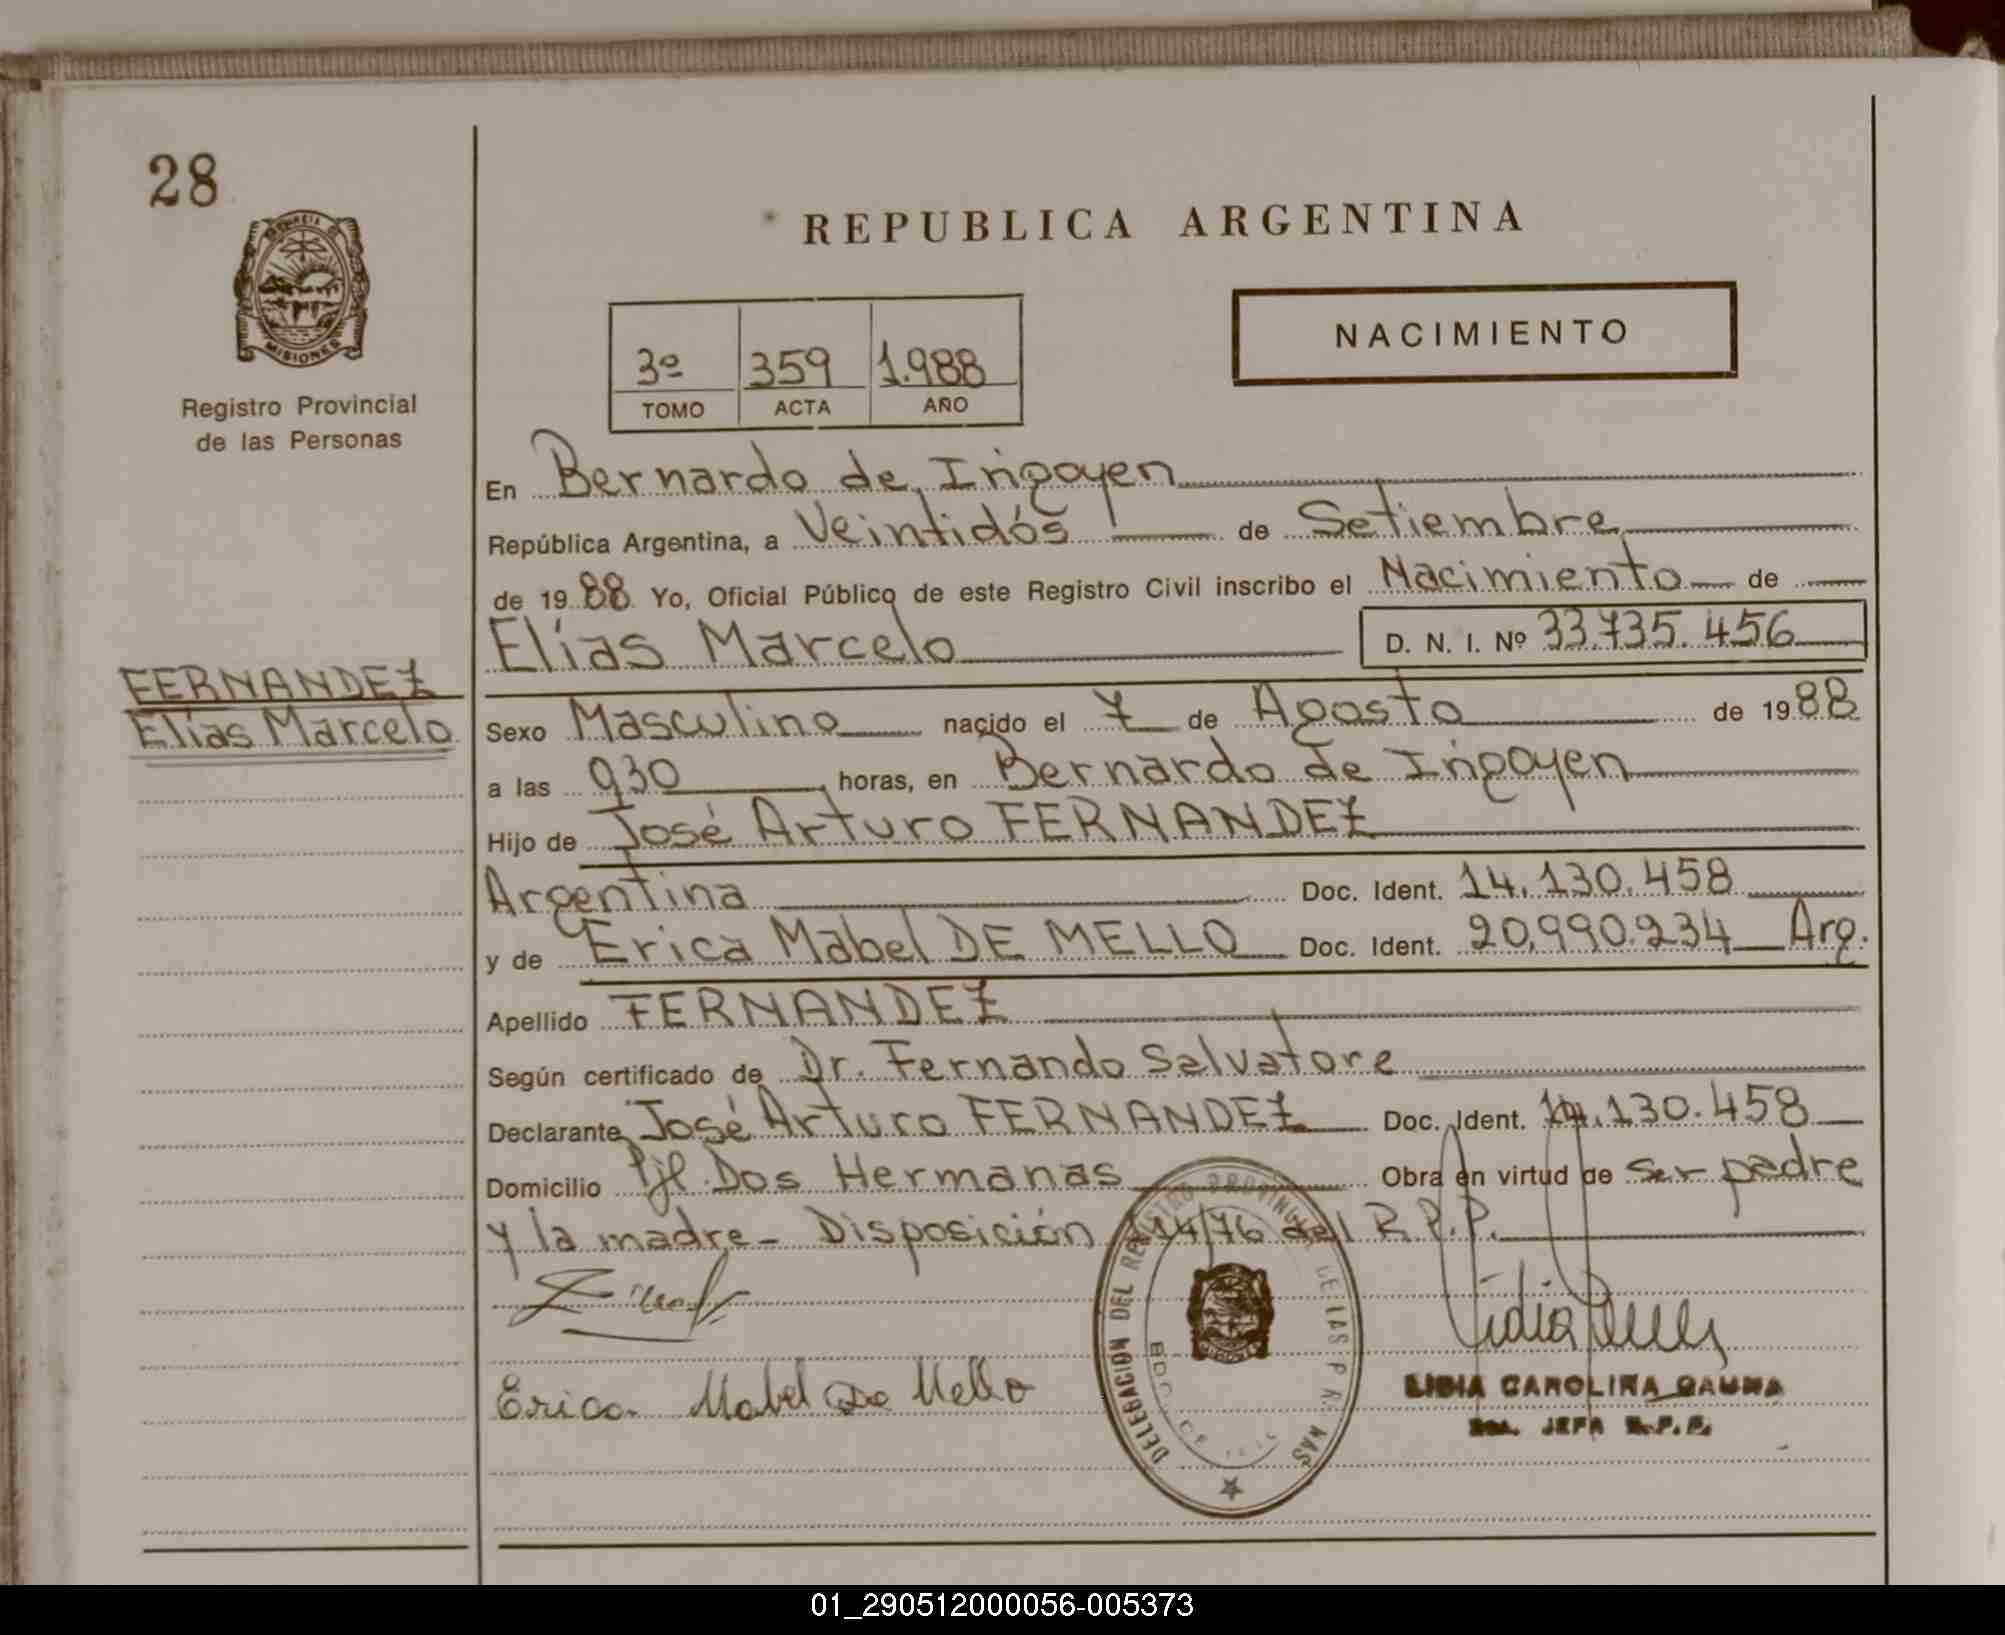 28
PROVINCIA DE
MISIONES
Registro Provincial
de las Personas
FERNANDEZ
Elías Marcelo
REPUBLICA ARGENTINA
3º 359 1.988
TOMO ACTA AÑO
NACIMIENTO
En Bernardo de Irigoyen
República Argentina, a Veintidós de Setiembre
de 1988 Yo, Oficial Público de este Registro Civil inscribo el Nacimiento de
Elías Marcelo D. N. I. Nº 33.735.456
Sexo Masculino nacido el 7 de Agosto de 1988
a las 930 horas, en Bernardo de Irigoyen
Hijo de José Arturo FERNANDEZ
Argentina Doc. Ident. 14.130.458
y de Erica Mabel DE MELLO Doc. Ident. 20.990.234 Arg.
Apellido FERNANDEZ
Según certificado de Dr. Fernando Salvatore
Declarante José Arturo FERNANDEZ Doc. Ident. 14.130.458
Domicilio Pje. Dos Hermanas Obra en virtud de ser padre
y la madre - Disposición 114/76 del R.P.P.
Erica Mabel De Mello
DELEGACION DEL REGISTRO PROVINCIAL DE LAS PERSONAS
MISIONES
Lidia
LIDIA CAROLINA
JEFA R.P.P.
01_290512000056-005373